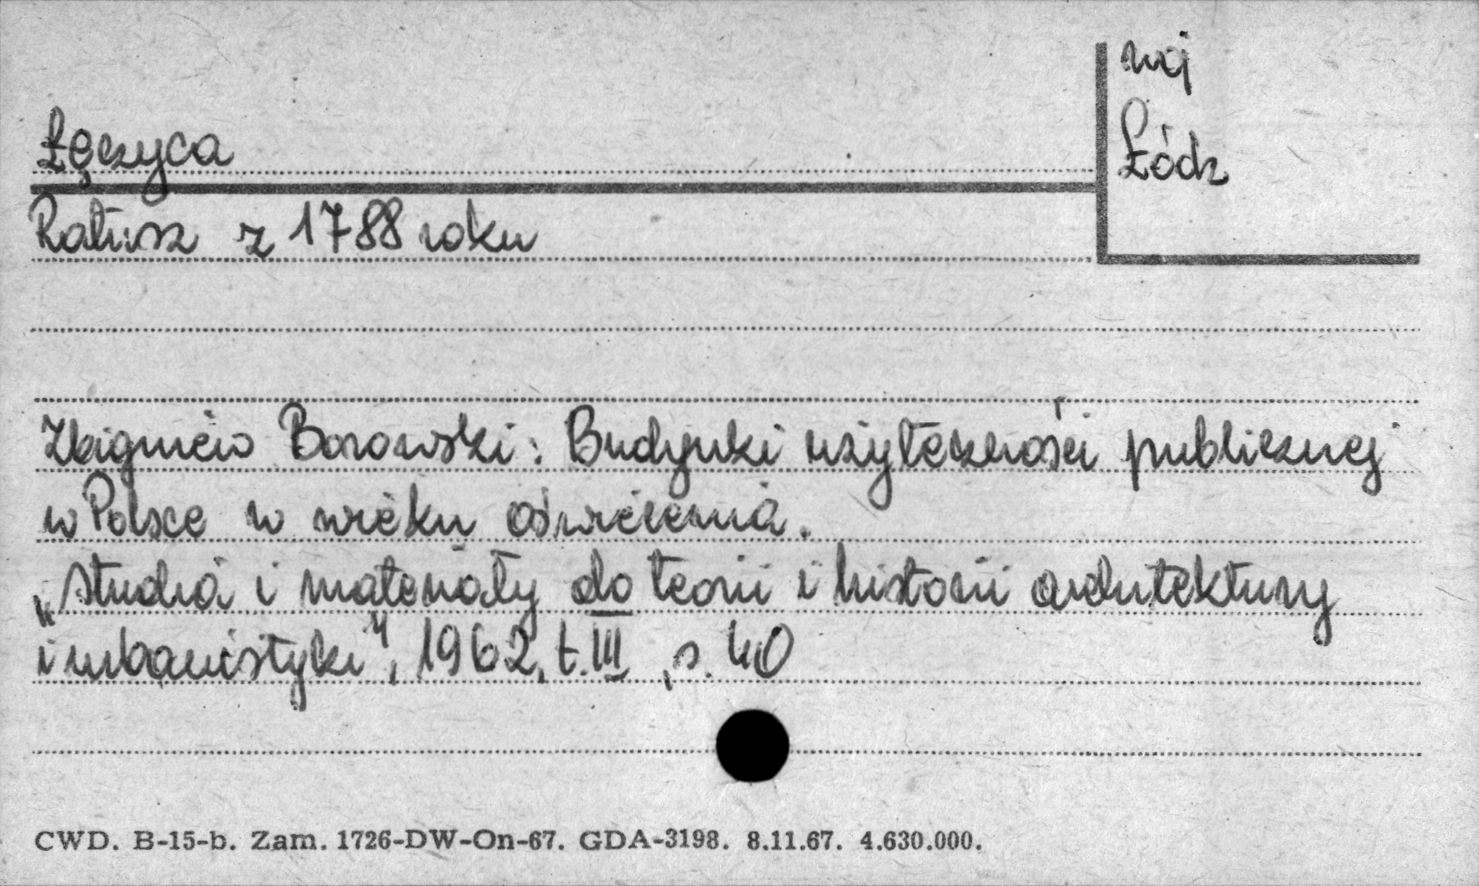 woj
Łódź
Łęczyca
Ratusz z 1788 roku
Zbigniew Borowski: Budynki użyteczności publicznej
w Polsce w wieku oświecenia.
„Studia i materiały do teorii i historii architektury
i urbanistyki", 1962, t. III, s. 40
CWD. B-15-b. Zam. 1726-DW-On-67. GDA-3198. 8.11.67. 4.630.000.